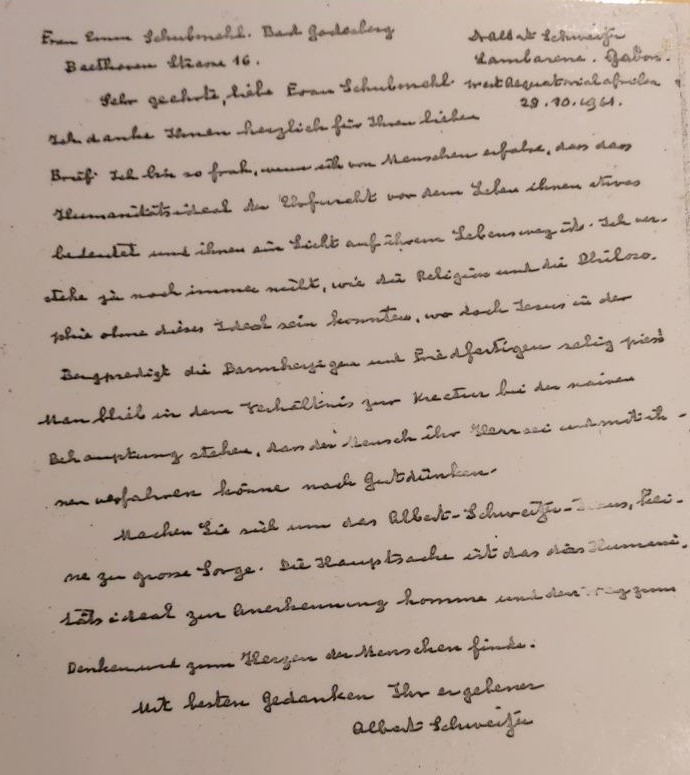 Frau Emm Schubmehl. Bad Godesberg
Beethoven Strasse 16.
Dr Albert Schweitzer
Lambarene. Gabon.
West Aequatorialafrika
29.10.1961.
Sehr geehrte, liebe Frau Schubmehl
Ich danke Ihnen herzlich für Ihren lieben
Brief. Ich bin so froh, wenn ich von Menschen erfahre, dass das
Humanitätsideal der Ehrfurcht vor dem Leben ihnen etwas
bedeutet und ihnen ein Licht auf ihrem Lebensweg ist. Ich ver-
stehe ja noch immer nicht, wie die Religion und die Philoso-
phie ohne dieses Ideal sein konnten, wo doch Jesus in der
Bergpredigt die Barmherzigen und Friedfertigen selig preist
Man blieb in dem Verhältnis zur Kreatur bei der naiven
Behauptung stehen, dass der Mensch ihr Herr sei und mit ih-
nen verfahren könne nach Gutdünken.
Machen Sie sich um das Albert-Schweitzer-Haus, kei-
ne zu grosse Sorge. Die Hauptsache ist das dies Humani-
tätsideal zur Anerkennung komme und den Weg zum
Denken und zum Herzen der Menschen finde.
Mit besten Gedanken Ihr ergebener
Albert Schweitzer